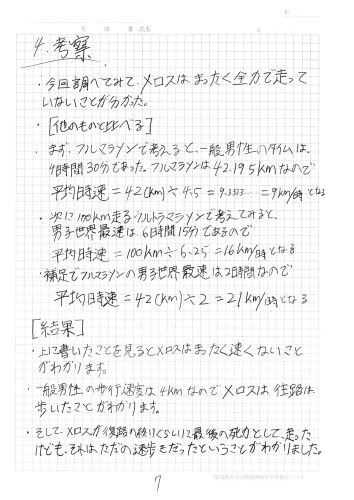 4. 考察
・今回調べてみて、メロスはまったく全力で走って
いないことが分かった。
・[他のものと比べる]
・まず、フルマラソンで考えると、一般男性のタイムは、
4時間30分であった。フルマラソンは42.195kmなので
平均時速=42(km)÷4.5=9.3333……=9km/時となる
・次に100km走るウルトラマラソンで考えてみると、
男子世界最速は、6時間15分であるので
平均時速=100km÷6.25=16km/時となる
・補足でフルマラソンの男子世界最速は2時間なので
平均時速=42(km)÷2=21km/時となる
[結果]
・上に書いたことを見るとメロスはまったく速くないこと
がわかります。
・一般男性の歩行速度は4kmなのでメロスは往路は
歩いたことがわかります。
・そして、メロスが復路の終りぐらいに最後の死力として走った
けども、それはただの速歩きだったということがわかりました。
7